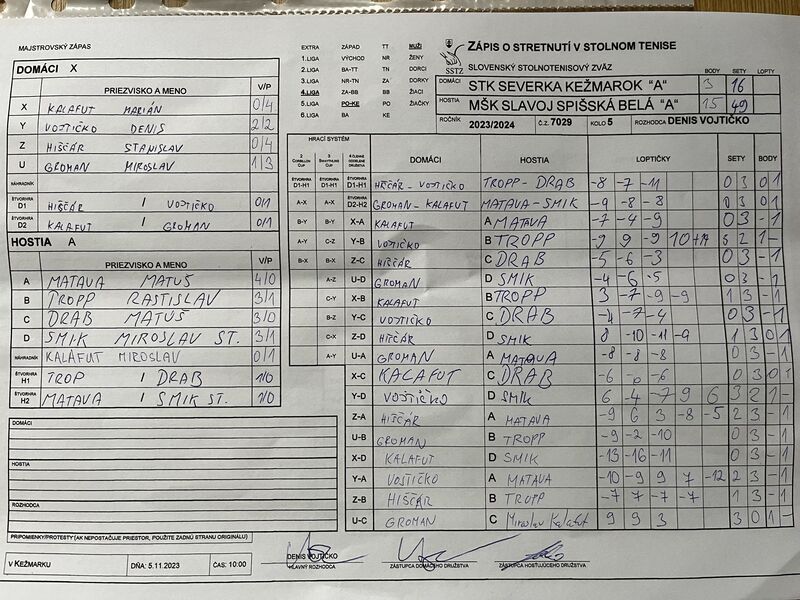 MAJSTROVSKÝ ZÁPAS
EXTRA ZÁPAD TT MUŽI
1.LIGA VÝCHOD NR ŽENY
2.LIGA BA-TT TN DORCI
3.LIGA NR-TN ZA DORKY
4.LIGA ZA-BB BB ŽIACI
5.LIGA PO-KE PO ŽIAČKY
6.LIGA BA KE
SSTZ
ZÁPIS O STRETNUTÍ V STOLNOM TENISE
SLOVENSKÝ STOLNOTENISOVÝ ZVÄZ
BODY SETY LOPTY
DOMÁCI STK SEVERKA KEŽMAROK "A" 3 16
HOSTIA MŠK SLAVOJ SPIŠSKÁ BELÁ "A" 15 49
ROČNÍK 2023/2024 Č.Z. 7029 KOLO 5 ROZHODCA DENIS VOJTIČKO
DOMÁCI X
PRIEZVISKO A MENO V/P
X KALAFUT MARIÁN 0/4
Y VOJTIČKO DENIS 2/2
Z HIŠČÁR STANISLAV 0/4
U GROMAN MIROSLAV 1/3
NÁHRADNÍK
ŠTVORHRA D1 HIŠČÁR / VOJTIČKO 0/1
ŠTVORHRA D2 KALAFUT / GROMAN 0/1
HOSTIA A
PRIEZVISKO A MENO V/P
A MATAVA MATÚŠ 4/0
B TROPP RASTISLAV 3/1
C DRAB MATÚŠ 3/0
D SMIK MIROSLAV ST. 3/1
NÁHRADNÍK KALAFUT MIROSLAV 0/1
ŠTVORHRA H1 TROP / DRAB 1/0
ŠTVORHRA H2 MATAVA / SMIK ST. 1/0
DOMÁCI
HOSTIA
ROZHODCA
PRIPOMIENKY/PROTESTY (AK NEPOSTAČUJE PRIESTOR, POUŽITE ZADNÚ STRANU ORIGINÁLU)
V KEŽMARKU DŇA: 5.11.2023 ČAS: 10:00
HRACÍ SYSTÉM
2 CORBILLON CUP 3 SWAYTHLING CUP 4 ČLENNÉ ODDELENÉ DRUŽSTVÁ DOMÁCI HOSTIA LOPTIČKY SETY BODY
ŠTVORHRA D1-H1 ŠTVORHRA D1-H1 ŠTVORHRA D1-H1 HIŠČÁR - VOJTIČKO TROPP - DRAB -8 -7 -11 0 3 0 1
A-X A-X ŠTVORHRA D2-H2 GROMAN - KALAFUT MATAVA - SMIK -9 -8 -8 0 3 0 1
B-Y B-Y X-A KALAFUT A MATAVA -7 -4 -9 0 3 - 1
A-Y C-Z Y-B VOJTIČKO B TROPP 9 -9 10 2 1 -
B-X B-X Z-C HIŠČÁR C DRAB -5 -6 -3 0 3 - 1
A-Z U-D GROMAN D SMIK -4 -6 -5 0 3 - 1
C-Y X-B KALAFUT B TROPP 3 -7 -9 -9 1 3 - 1
B-Z Y-C VOJTIČKO C DRAB -4 -7 -4 0 3 - 1
C-X Z-D HIŠČÁR D SMIK 8 -10 -11 -9 1 3 0 1
A-Y U-A GROMAN A MATAVA -8 -8 -8 0 3 - 1
X-C KALAFUT C DRAB -6 -6 0 3 0 1
Y-D VOJTIČKO D SMIK 6 -4 -7 9 6 3 2 1 -
Z-A HIŠČÁR A MATAVA -9 6 3 -8 -5 2 3 - 1
U-B GROMAN B TROPP -9 -2 -10 0 3 - 1
X-D KALAFUT D SMIK -13 -16 -11 0 3 - 1
Y-A VOJTIČKO A MATAVA -10 -9 9 7 -12 2 3 - 1
Z-B HIŠČÁR B TROPP -7 -7 -7 1 3 - 1
U-C GROMAN C Miroslav Kalafut 9 9 3 3 0 1 -
DENIS VOJTIČKO
HLAVNÝ ROZHODCA ZÁSTUPCA DOMÁCEHO DRUŽSTVA ZÁSTUPCA HOSŤUJÚCEHO DRUŽSTVA